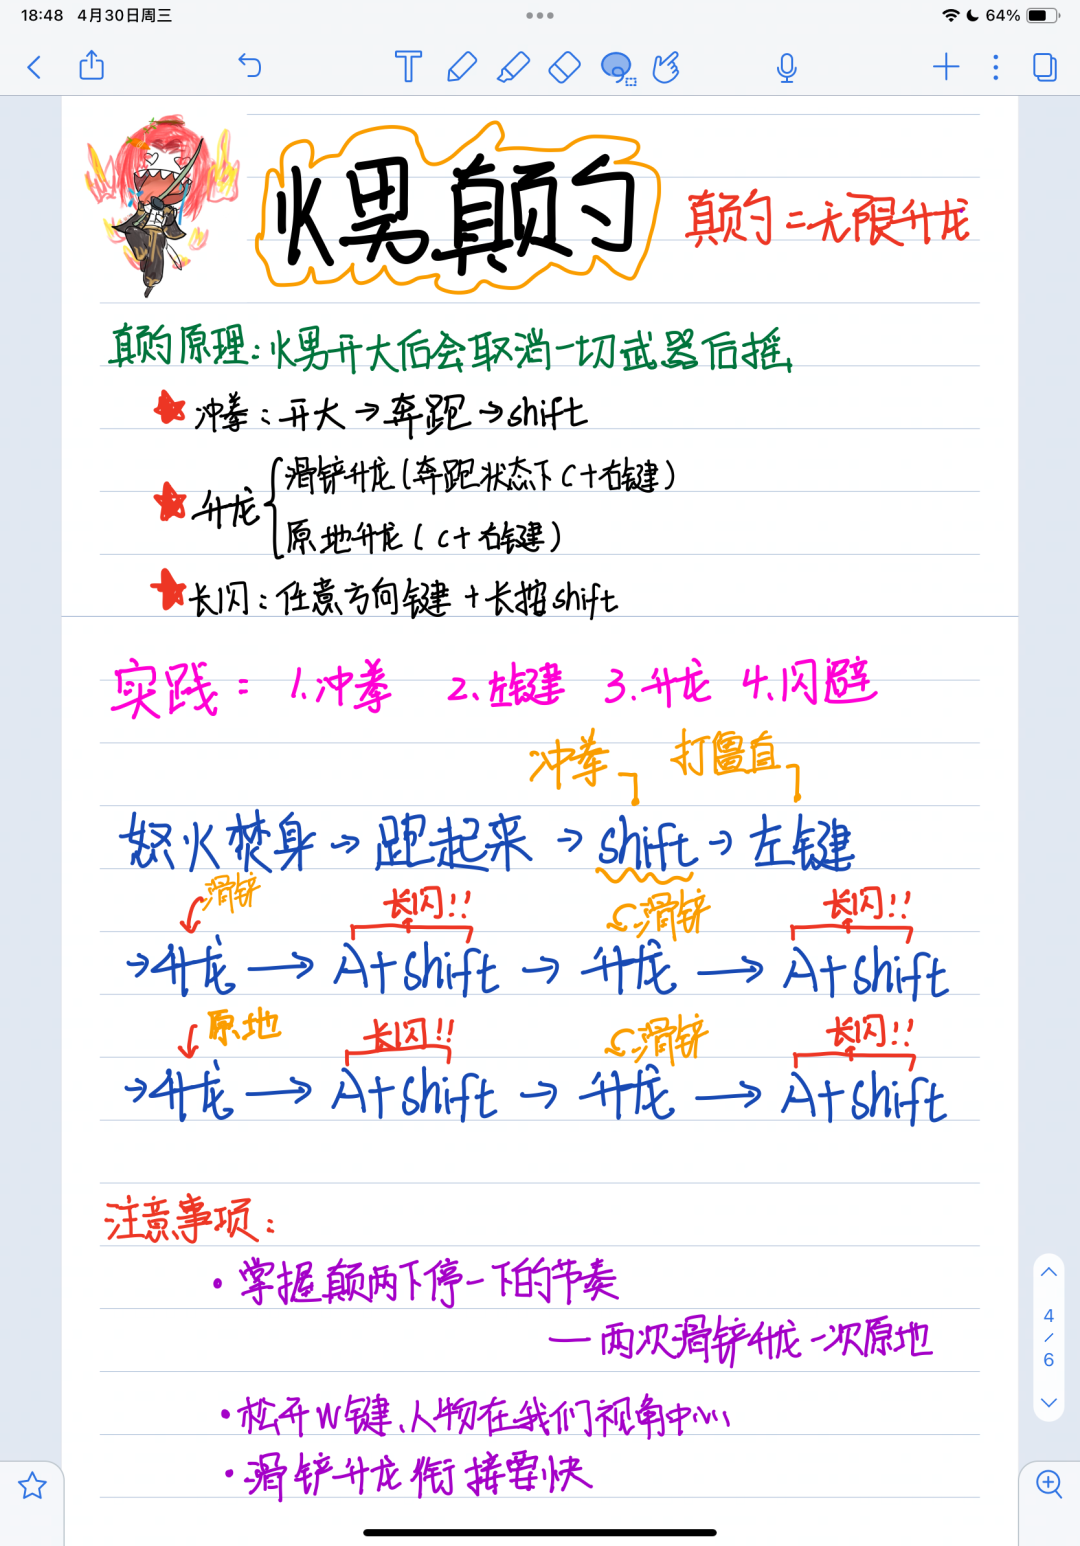 18:48 4月30日周三
64%
火男颠勺
颠勺=无限升龙
颠勺原理:火男开大后会取消一切武器后摇
冲拳:开大→奔跑→shift
升龙
滑铲升龙(奔跑状态下C+右键)
原地升龙(C+右键)
长闪:任意方向键+长按shift
实践: 1.冲拳 2.左键 3.升龙 4.闪避
冲拳 打僵直
怒火焚身→跑起来→shift→左键
滑铲 长闪!! 滑铲 长闪!!
→升龙→A+shift→升龙→A+shift
原地 长闪!! 滑铲 长闪!!
→升龙→A+shift→升龙→A+shift
注意事项:
•掌握颠两下停一下的节奏
—两次滑铲升龙一次原地
•松开W键、人物在我们视角中心
•滑铲升龙衔接要快
4/6